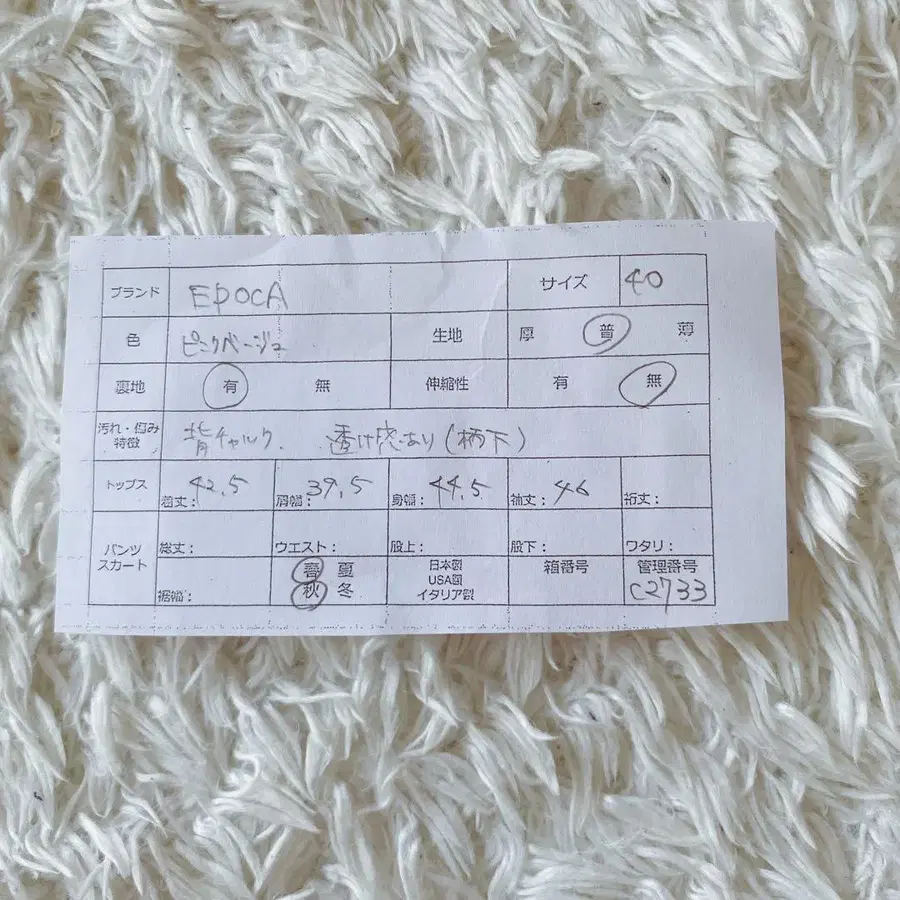 ブランド EPOCA サイズ 40
色 ピンクベージュ 生地 厚 普 薄
裏地 有 無 伸縮性 有 無
汚れ・傷み
特徴 背チャルク. 透け感あり(柄下)
トップス 着丈: 42.5 肩幅: 39.5 身幅: 44.5 袖丈: 46 裄丈:
パンツ
スカート 総丈: ウエスト: 股上: 股下: ワタリ:
裾幅: 春 夏
秋 冬
日本製
USA製
イタリア製
箱番号
管理番号
C2733